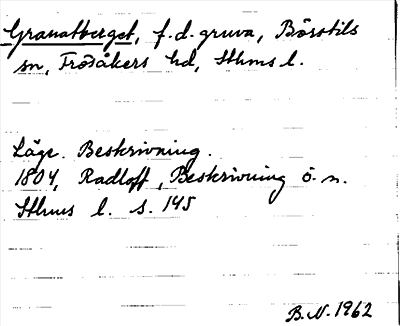 Granatberget, f.d. gruva, Börstils
sn, Frösåkers hd, Sthms l.
Läge. Beskrivning.
1804, Radloff, Beskrivning ö. n.
Sthms l. s. 145
B.N. 1962